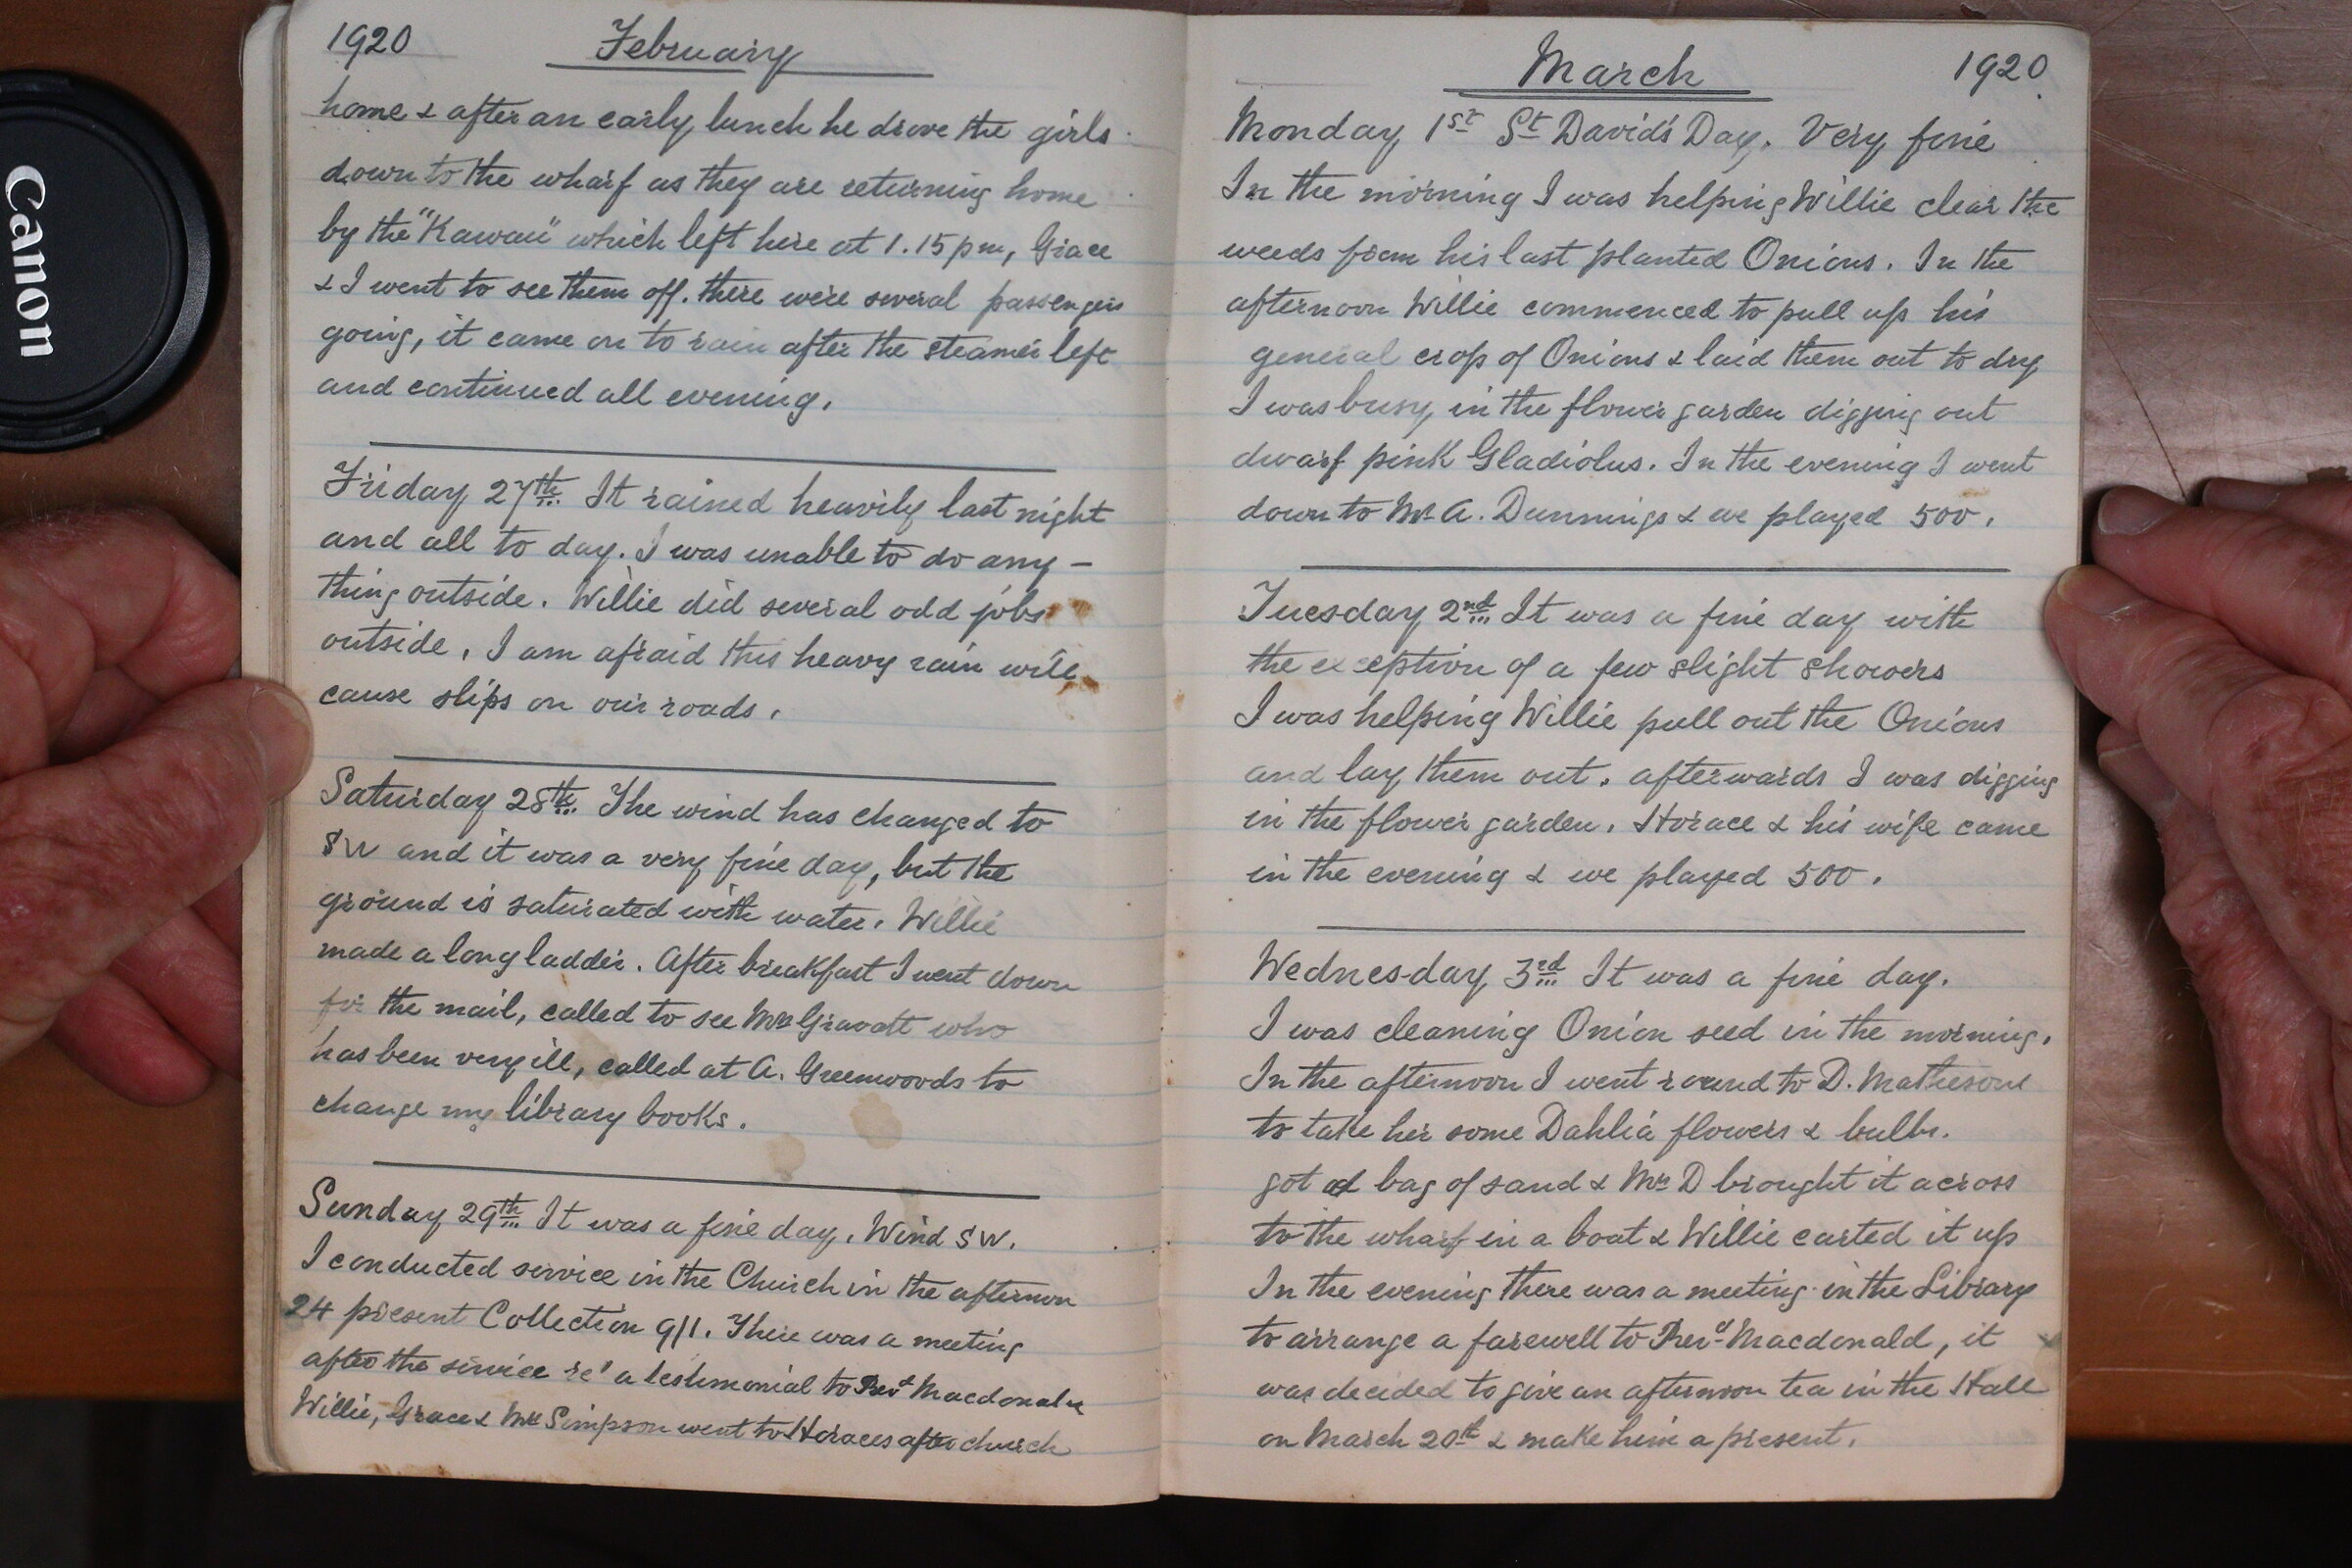 Canon
1920 February
home & after an early lunch he drove the girls
down to the wharf as they are returning home
by the "Kawau" which left here at 1.15 pm, Grace
& I went to see them off. there were several passengers
going, it came on to rain after the steamer left
and continued all evening.
Friday 27th It rained heavily last night
and all to day. I was unable to do any-
thing outside. Willie did several odd jobs
outside. I am afraid this heavy rain will
cause slips on our roads.
Saturday 28th The wind has changed to
SW and it was a very fine day, but the
ground is saturated with water. Willie
made a long ladder. After breakfast I went down
for the mail, called to see Mrs Gravatt who
has been very ill, called at A. Greenwoods to
change my library books.
Sunday 29th It was a fine day. Wind SW.
I conducted service in the Church in the afternoon
24 present Collection 9/1. There was a meeting
after the service re' a testimonial to Revd Macdonald
Willie, Grace & Mrs Simpson went to Horaces after church
March 1920
Monday 1st St David's Day. Very fine
In the morning I was helping Willie clear the
weeds from his last planted Onions. In the
afternoon Willie commenced to pull up his
general crop of Onions & laid them out to dry
I was busy in the flower garden digging out
dwarf pink Gladiolus. In the evening I went
down to Mr A. Dunnings & we played 500.
Tuesday 2nd It was a fine day with
the exception of a few slight showers
I was helping Willie pull out the Onions
and lay them out. afterwards I was digging
in the flower garden. Horace & his wife came
in the evening & we played 500.
Wednesday 3rd It was a fine day.
I was cleaning Onion seed in the morning.
In the afternoon I went round to D. Mathesons
to take her some Dahlia flowers & bulbs.
got a bag of sand & Mrs D brought it across
to the wharf in a boat & Willie carted it up
In the evening there was a meeting in the Library
to arrange a farewell to Revd Macdonald, it
was decided to give an afternoon tea in the Hall
on March 20th & make him a present.